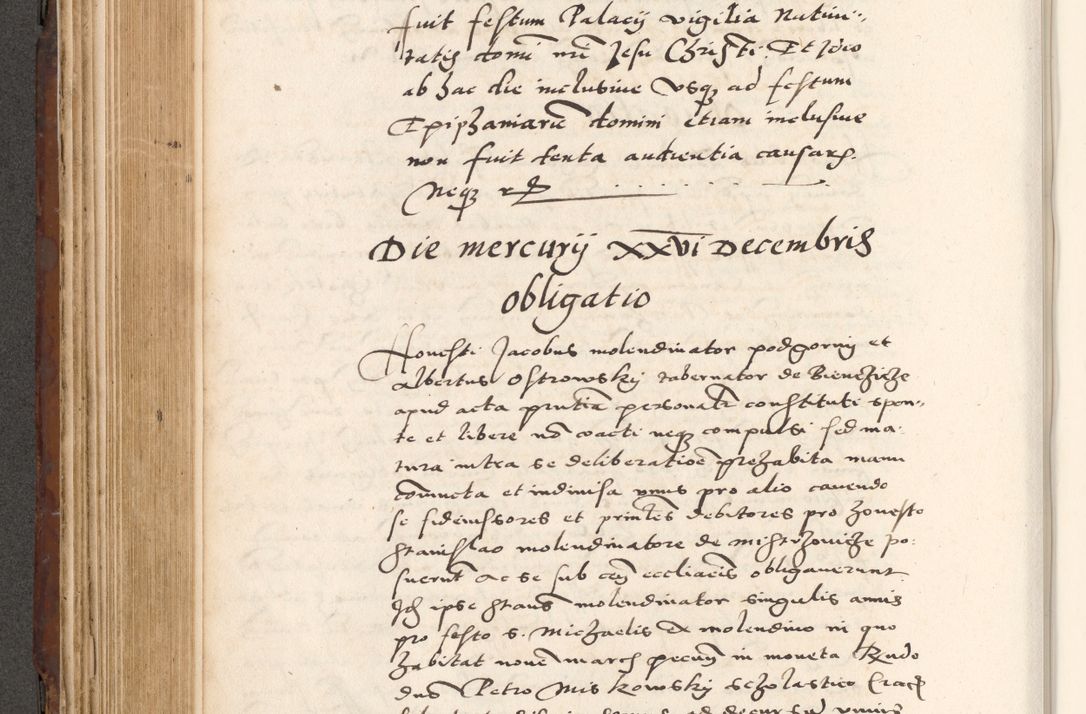 fuit festum Palacij vigilia Nativi-
tatis domi nri Jesu Christi. Et Ideo
ab hac die inclusive Usq ad festum
Epiphaniaru domini etiam inclusive
non fuit tenta audientia causarz.
Neq
Die mercurij XXVI Decembris
obligatio
Honesti Jacobus molendinator podgorny et
Albertus Ostrowsky tabernator de Bienczicze
apud acta pntia personalr constituti spon-
te et libere no coacti neq compulsi sed ma-
tura intra se deliberatioe prehabita manu
coniuncta et indivisa unus pro alio cavendo
se fideiussores et prinles debitores pro honesto
Stanislao molendinatore de Mistrzowicze po-
suerut ac se sub cen eccliacis obligaverunt
Ith ipse Staus molendinator singulis annis
pro festo S. Michaelis ex molendino in quo
habitat nove march pecun in moneta Rndo
dno Petro Miskowsky scholastico Cracz